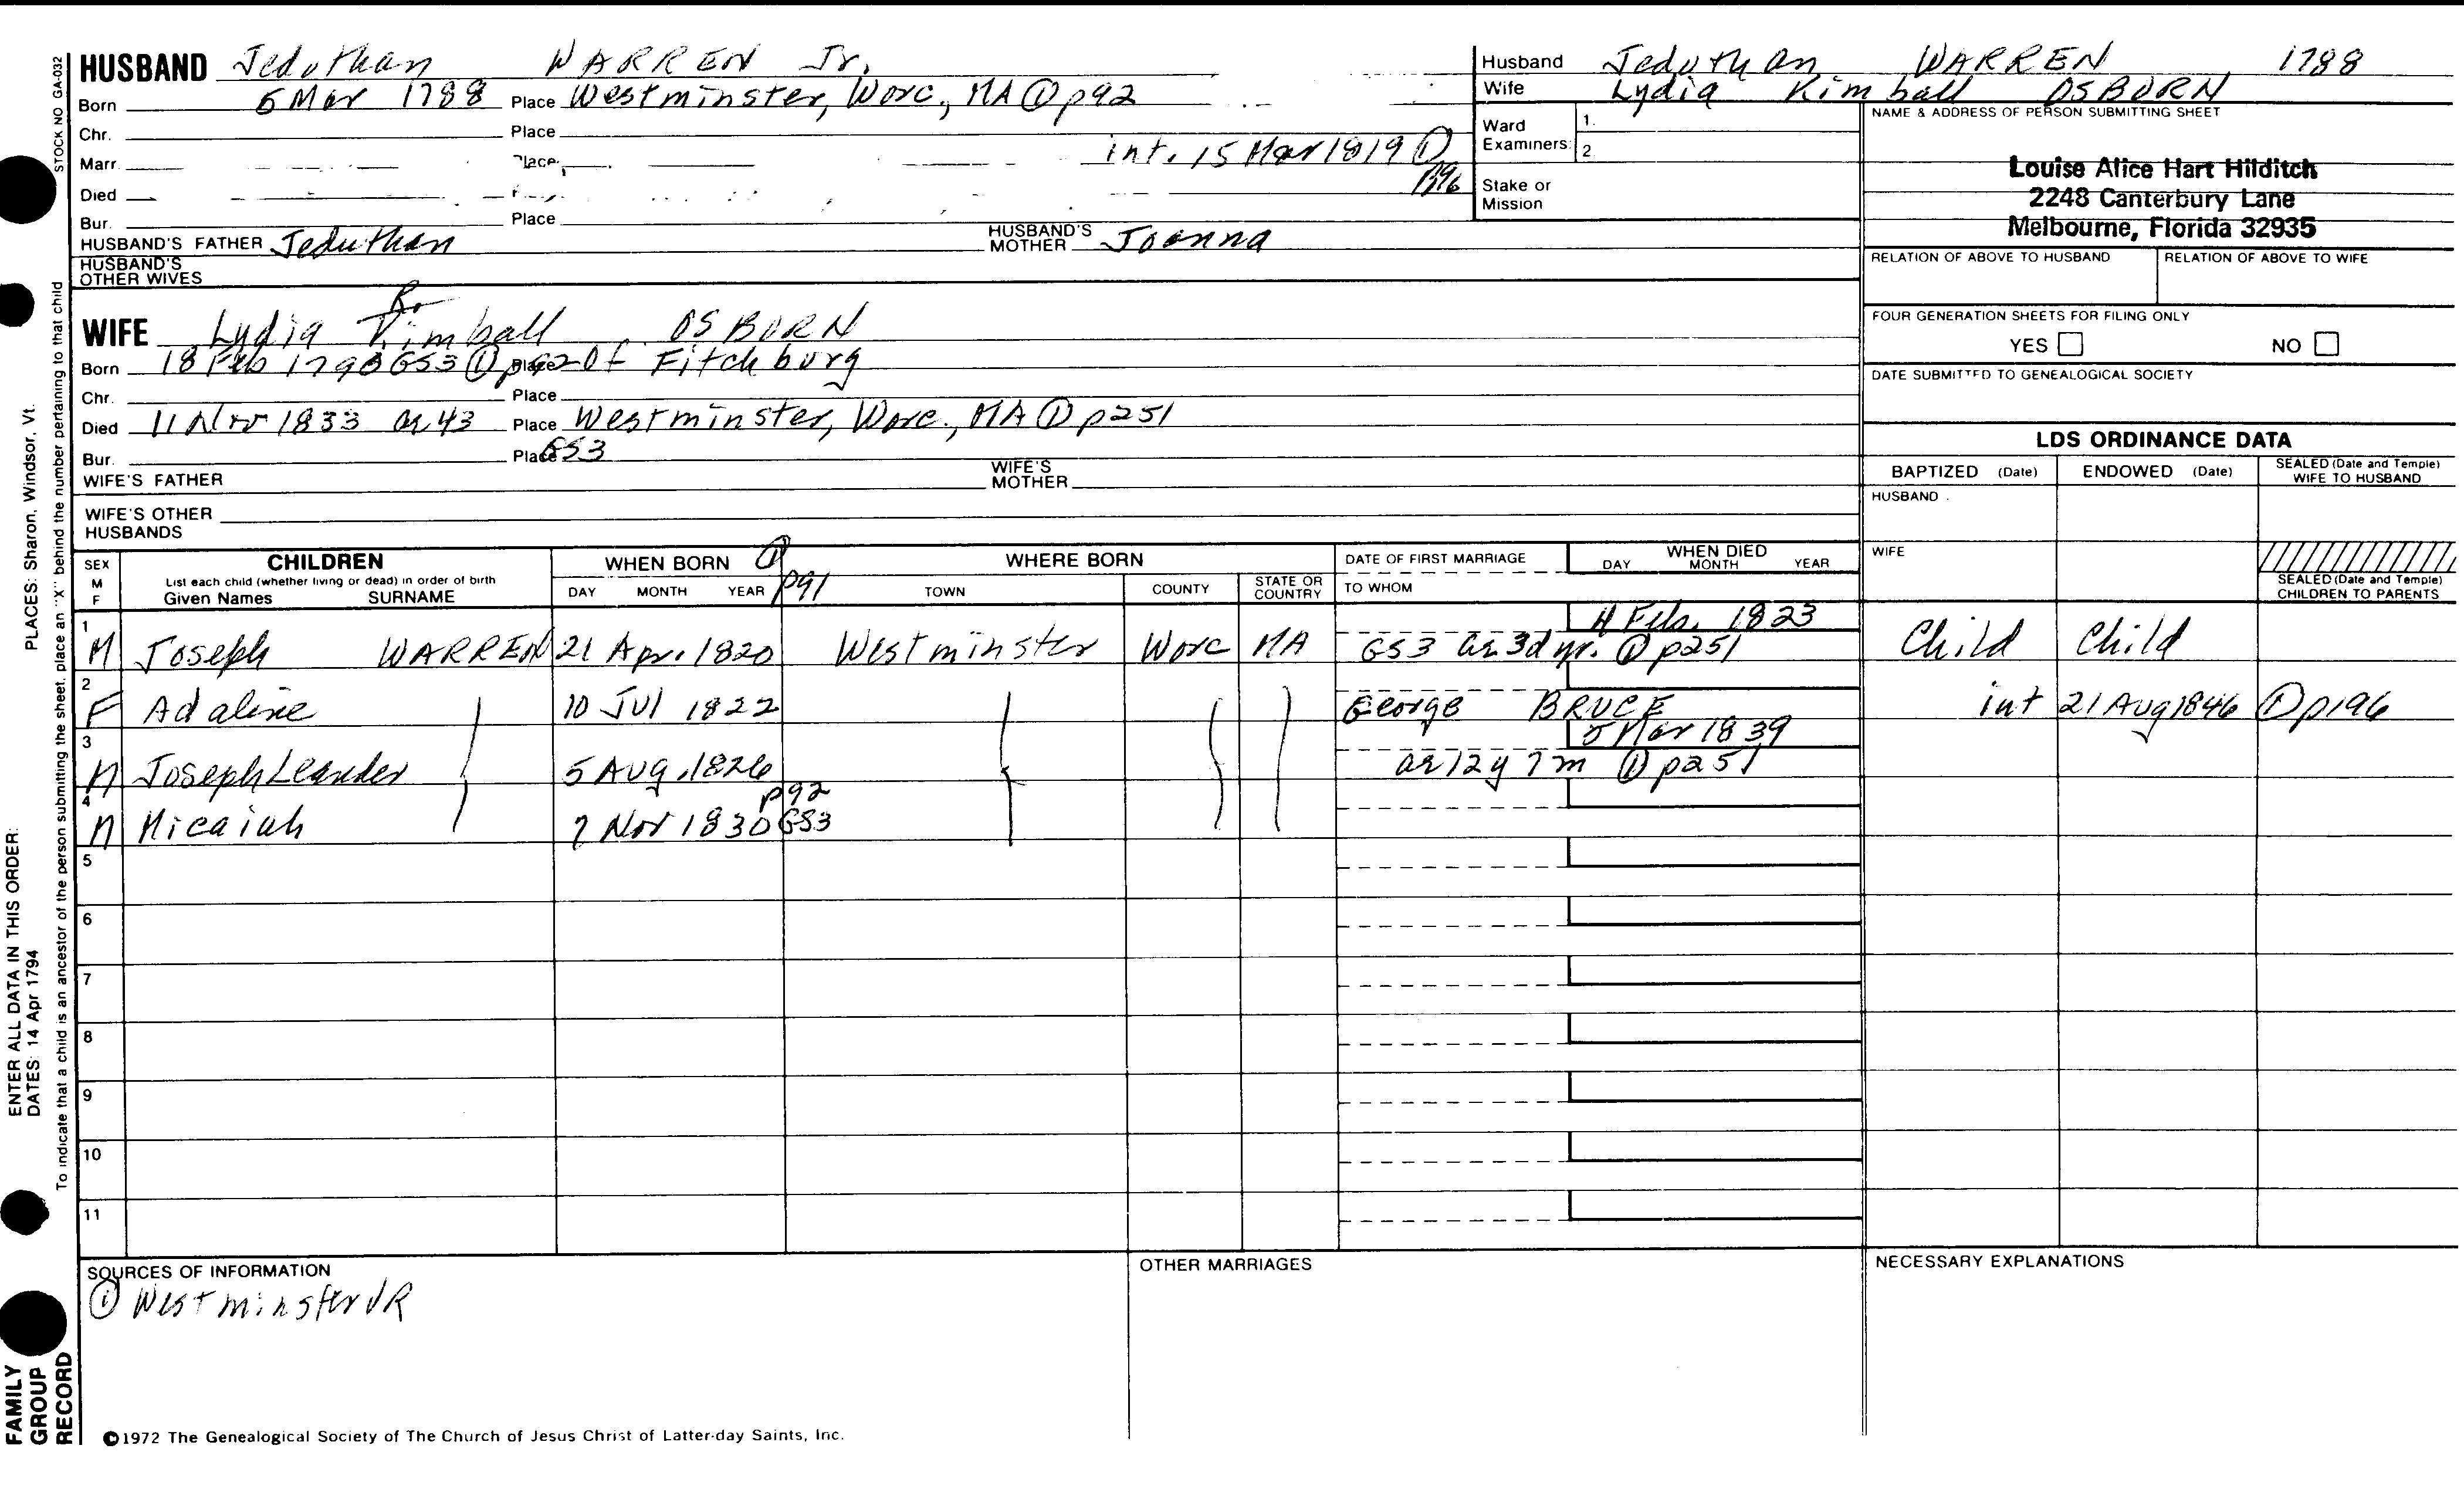 STOCK NO GA-032
HUSBAND Jeduthan WARREN Jr.
Born 6 Mar 1788 Place Westminster, Worc., MA ① p92
Chr. Place
Marr. Place int. 15 Mar 1819 ①
Died
Bur. Place
HUSBAND'S FATHER Jeduthan HUSBAND'S MOTHER Joanna
HUSBAND'S OTHER WIVES
WIFE Lydia Kimball OSBORN
Born 18 Feb 1790 GS3 ① p92 Place Of Fitchburg
Chr. Place
Died 11 Nov 1833 ae 43 Place Westminster, Worc., MA ① p251
Bur. Place GS3
WIFE'S FATHER WIFE'S MOTHER
WIFE'S OTHER HUSBANDS
Husband Jeduthan WARREN 1788
Wife Lydia Kimball OSBORN
Ward Examiners: 1.
2
Stake or Mission
NAME & ADDRESS OF PERSON SUBMITTING SHEET
Louise Alice Hart Hilditch
2248 Canterbury Lane
Melbourne, Florida 32935
RELATION OF ABOVE TO HUSBAND RELATION OF ABOVE TO WIFE
FOUR GENERATION SHEETS FOR FILING ONLY
YES NO
DATE SUBMITTED TO GENEALOGICAL SOCIETY
LDS ORDINANCE DATA
BAPTIZED (Date) ENDOWED (Date) SEALED (Date and Temple) WIFE TO HUSBAND
HUSBAND
WIFE
SEALED (Date and Temple) CHILDREN TO PARENTS
SEX M F CHILDREN WHEN BORN ① p91 WHERE BORN DATE OF FIRST MARRIAGE WHEN DIED
List each child (whether living or dead) in order of birth
Given Names SURNAME DAY MONTH YEAR TOWN COUNTY STATE OR COUNTRY TO WHOM DAY MONTH YEAR
1 M Joseph WARREN 21 Apr. 1820 Westminster Worc MA GS3 ae 3d yr. ① p251 Feb. 1823 Child Child
2 F Adaline 10 Jul 1822 George BRUCE int 21 Aug 1846 ① p196
3 M Joseph Leander 5 Aug. 1826 ae 12 y 7 m ① p251 5 Mar 1839
4 M Micaiah 7 Nov 1830 p92 GS3
5
6
7
8
9
10
11
SOURCES OF INFORMATION
① Westminster VR
OTHER MARRIAGES
NECESSARY EXPLANATIONS
©1972 The Genealogical Society of The Church of Jesus Christ of Latter-day Saints, Inc.
FAMILY GROUP RECORD
ENTER ALL DATA IN THIS ORDER:
DATES: 14 Apr 1794 PLACES: Sharon, Windsor, Vt.
To indicate that a child is an ancestor of the person submitting the sheet, place an "X" behind the number pertaining to that child